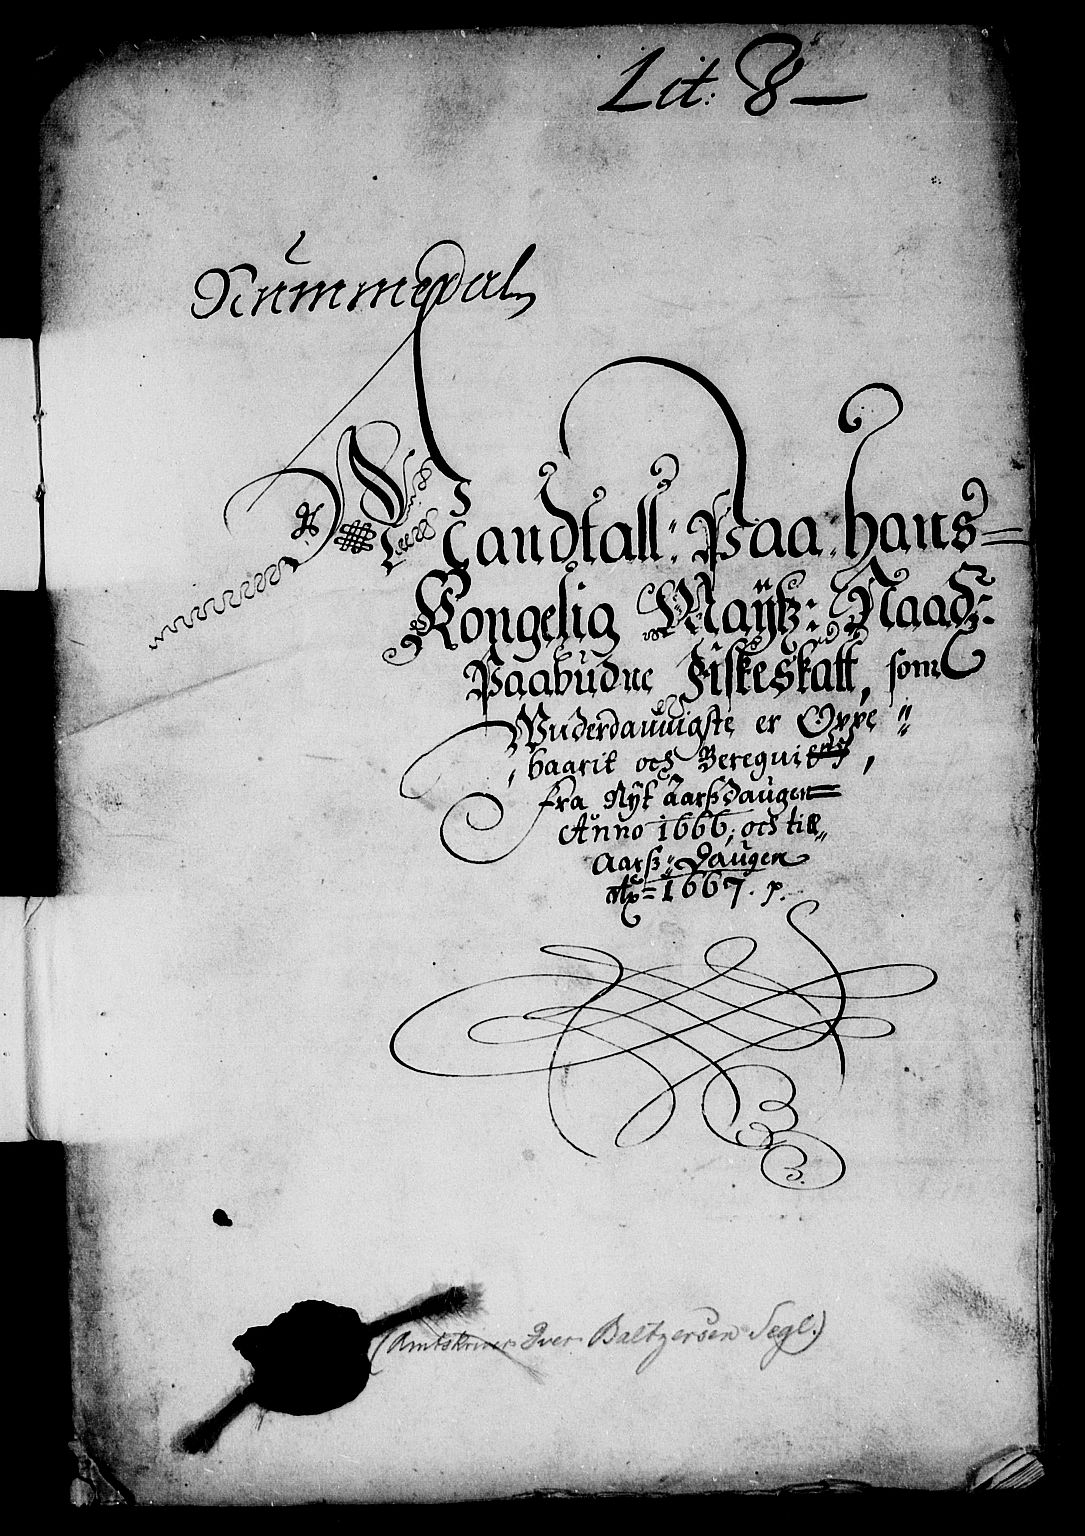 Lit: 8 —
Nummedals
Mandtall: Paa hans=
Kongelig Maÿtz: Naadz:
Paabudne Fiskeskatt, som
Wnderdannigste er Oppe"
baarit och Beregnit,
fra Nÿt aarsßdaugen=
Anno 1666, och till"
Aarß: Daugen
Ao= 1667. p.
(Amtskriver Iver Baltzersen Segl.)